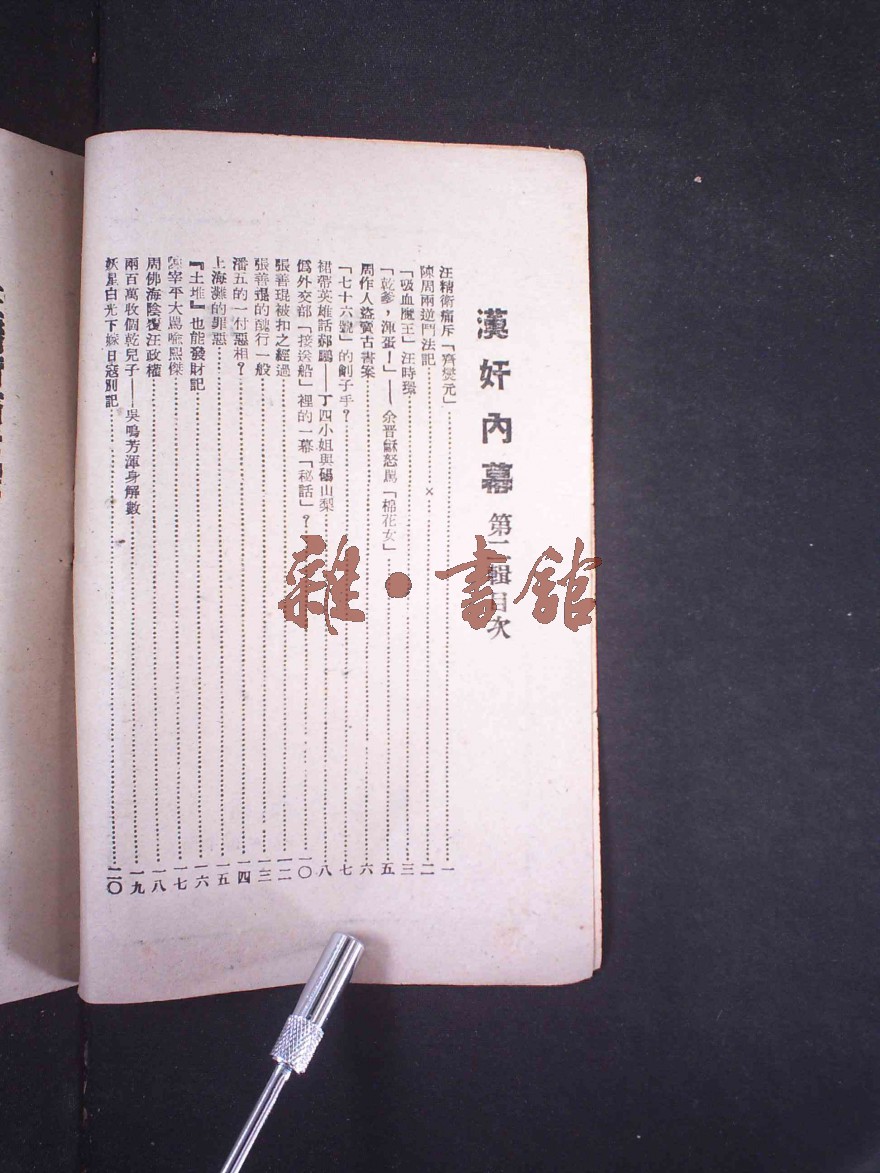 漢奸內幕 第二輯目次
汪精衛痛斥「齊燮元」 一
陳周兩逆鬥法記 × 二
「吸血魔王」汪時璟 三
「乾爹，渾蛋！」——余晉龢怒罵「棉花女」 五
周作人盜賣古書案 六
「七十六號」的劊子手？ 七
裙帶英雄話郝鵬——丁四小姐與碭山梨 八
僞外交部「接送船」裡的一幕「秘話」？ 一〇
張善琨被扣之經過 一二
張善琨的醜行一般 一三
潘五的一付惡相？ 一四
上海灘的罪惡 一五
『土堆』也能發財記 一六
宰平大罵喩熙傑 一七
周佛海陰覆汪政權 一八
兩百萬收個乾兒子——吳鳴芳渾身解數 一九
妖星白光下嫁日寇別記 二〇
雜·書館